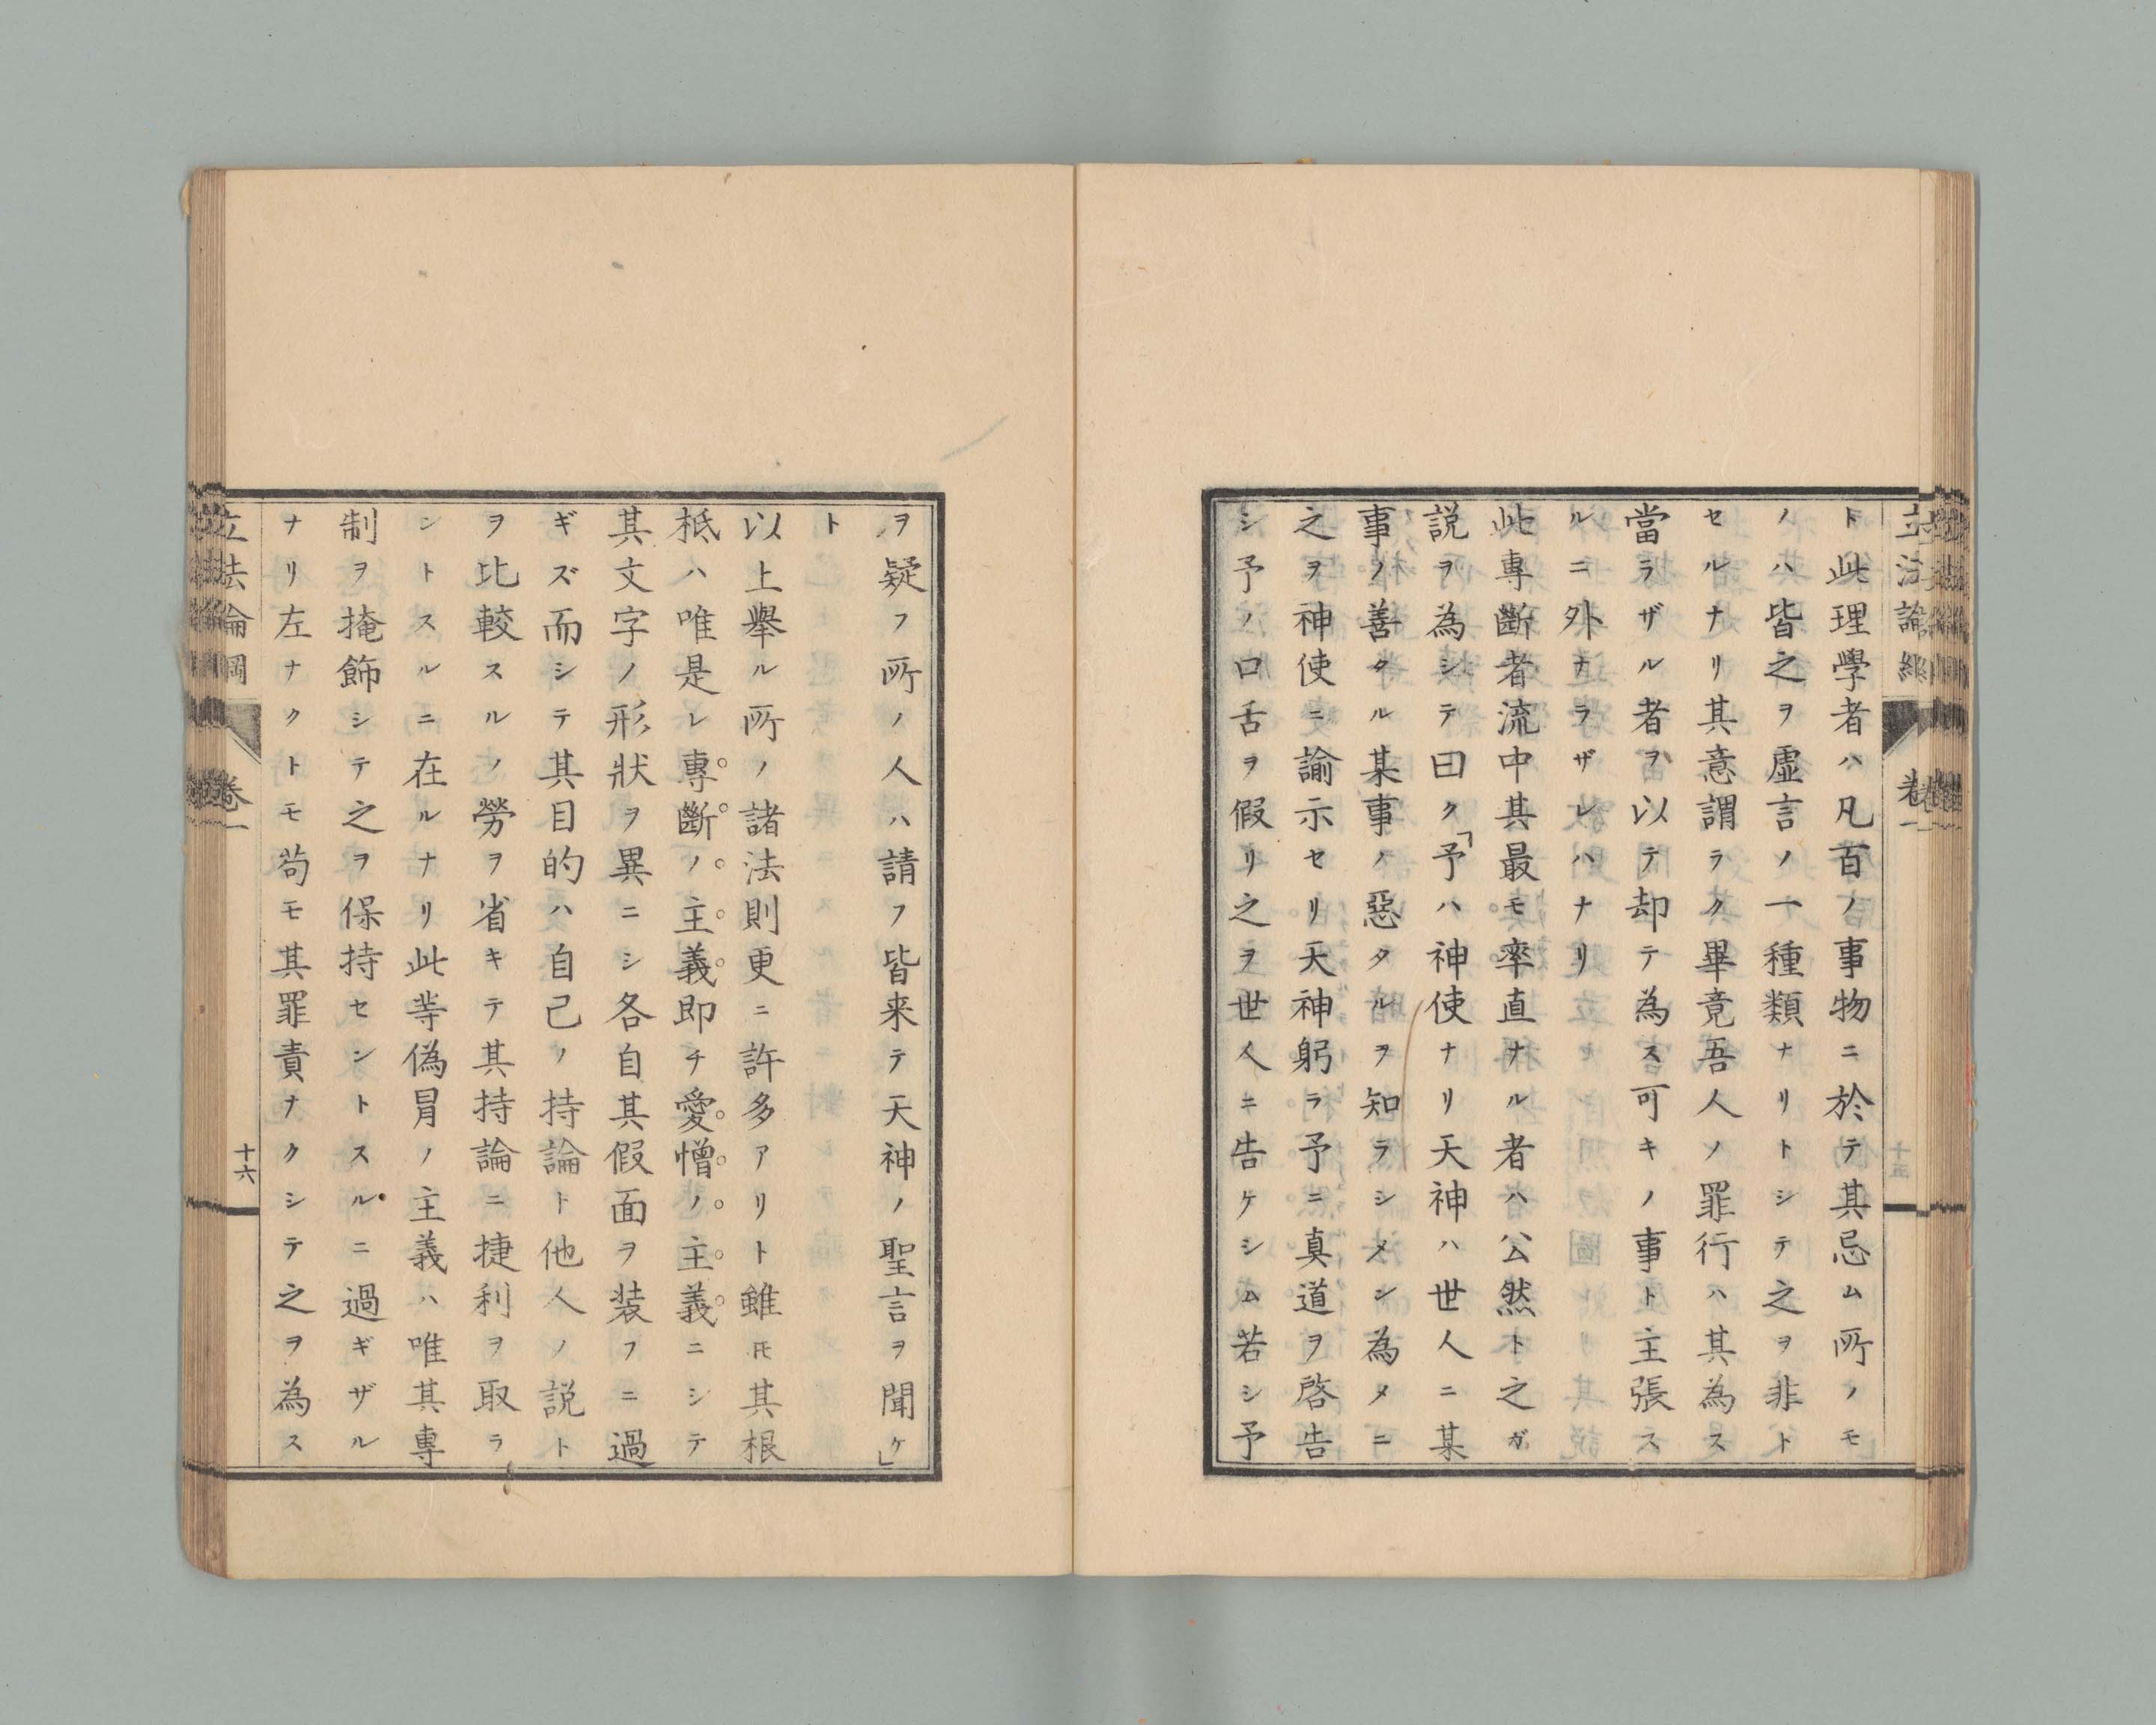 ト此理學者ハ凡百ノ事物ニ於テ其忌ム所ノモ
ノハ皆之ヲ虚言ノ一種類ナリトシテ之ヲ非ト
セルナリ其意謂ラク畢竟吾人ノ罪行ハ其為ス
當ラザル者ヲ以テ却テ為ス可キノ事ト主張ス
ルニ外ナラザレハナリ
此專斷者流中其最モ率直ナル者ハ公然ト之ガ
説ヲ為シテ曰ク「予ハ神使ナリ天神ハ世人ニ某
事ノ善タル某事ノ惡タルヲ知ラシメン為メニ
之ヲ神使ニ諭示セリ天神躬ラ予ニ真道ヲ啓告
シ予ノ口舌ヲ假リ之ヲ世人ニ告ケシム若シ予
ヲ疑フ所ノ人ハ請フ皆来テ天神ノ聖言ヲ聞ケ」
ト
以上舉ル所ノ諸法則更ニ許多アリト雖𪜈其根
柢ハ唯是レ專斷ノ主義即チ愛憎ノ主義ニシテ
其文字ノ形狀ヲ異ニシ各自其假面ヲ装フニ過
ギズ而シテ其目的ハ自己ノ持論ト他人ノ説ト
ヲ比較スルノ勞ヲ省キテ其持論ニ捷利ヲ取ラ
ントスルニ在ルナリ此等偽冒ノ主義ハ唯其專
制ヲ掩飾シテ之ヲ保持セントスルニ過ギザル
ナリ左ナクトモ苟モ其罪責ナクシテ之ヲ為ス
立法論綱
卷一
十六